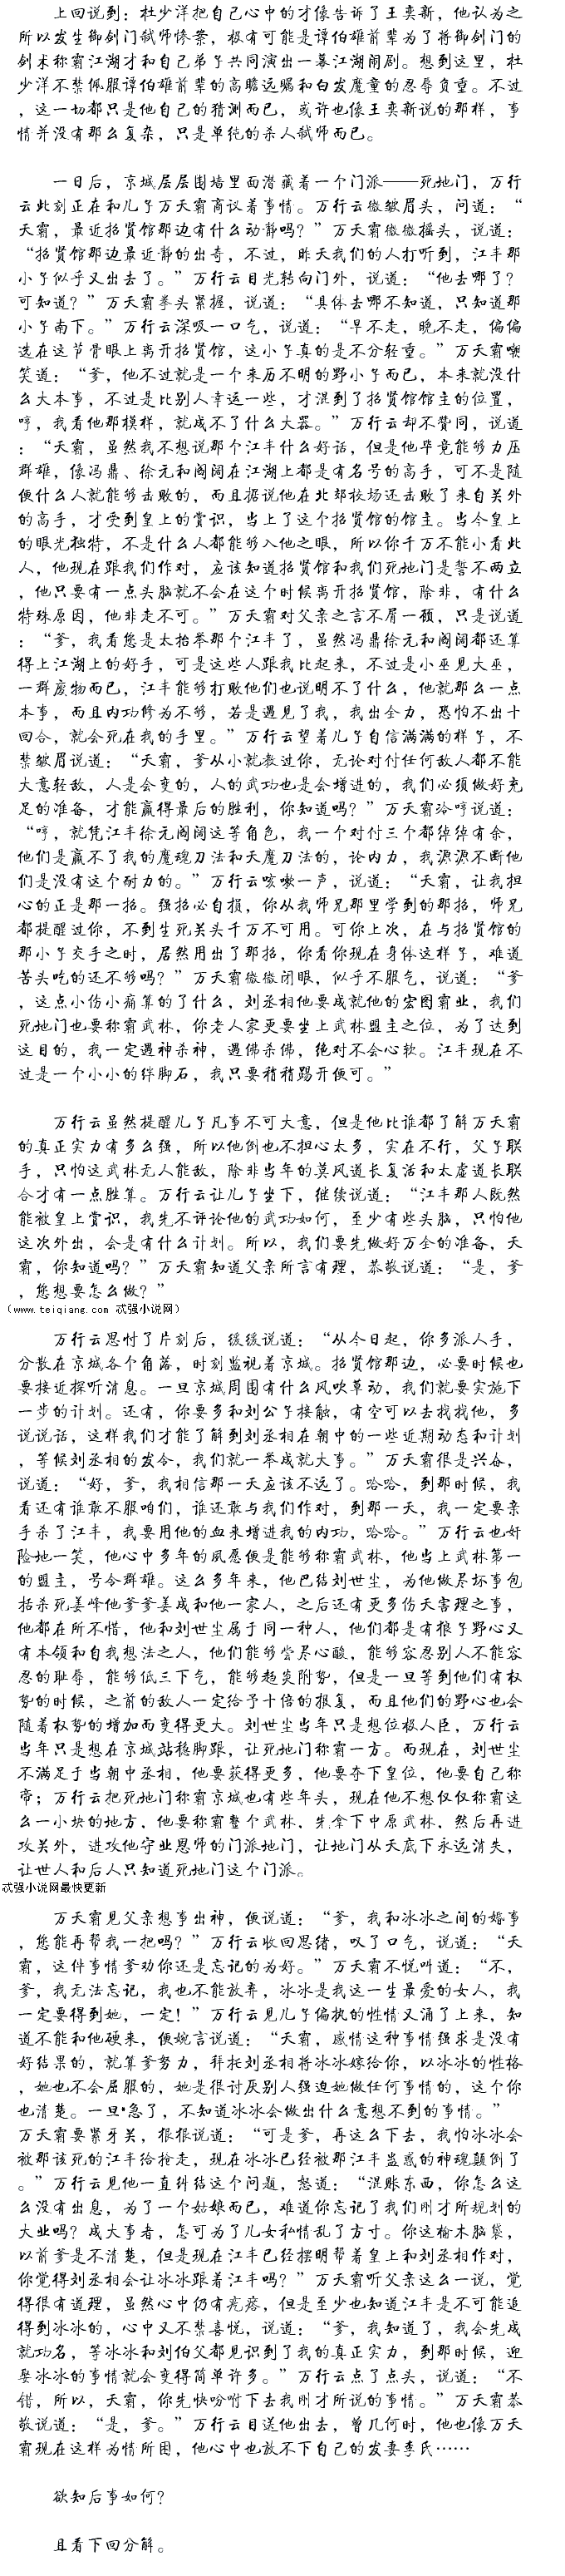 上回说到：杜少洋把自己心中的才像告诉了王奕新，他认为之
所以发生御剑门弑师惨案，极有可能是谭伯雄前辈为了将御剑门的
剑术称霸江湖才和自己弟子共同演出一幕江湖闹剧。想到这里，杜
少洋不禁佩服谭伯雄前辈的高瞻远瞩和白发魔童的忍辱负重。不过
，这一切都只是他自己的猜测而已，或许也像王奕新说的那样，事
情并没有那么复杂，只是单纯的杀人弑师而已。
一日后，京城层层围墙里面潜藏着一个门派——死地门，万行
云此刻正在和儿子万天霸商议着事情。万行云微皱眉头，问道：“
天霸，最近招贤馆那边有什么动静吗？”万天霸微微摇头，说道：
“招贤馆那边最近静的出奇，不过，昨天我们的人打听到，江丰那
小子似乎又出去了。”万行云目光转向门外，说道：“他去哪了？
可知道？”万天霸拳头紧握，说道：“具体去哪不知道，只知道那
小子南下。”万行云深吸一口气，说道：“早不走，晚不走，偏偏
选在这节骨眼上离开招贤馆，这小子真的是不分轻重。”万天霸嘲
笑道：“爹，他不过就是一个来历不明的野小子而已，本来就没什
么大本事，不过是比别人幸运一些，才混到了招贤馆馆主的位置，
哼，我看他那模样，就成不了什么大器。”万行云却不赞同，说道
：“天霸，虽然我不想说那个江丰什么好话，但是他毕竟能够力压
群雄，像冯鼎、徐元和阎阔在江湖上都是有名号的高手，可不是随
便什么人就能够击败的，而且据说他在北郊校场还击败了来自关外
的高手，才受到皇上的赏识，当上了这个招贤馆的馆主。当今皇上
的眼光独特，不是什么人都能够入他之眼，所以你千万不能小看此
人，他现在跟我们作对，应该知道招贤馆和我们死地门是誓不两立
，他只要有一点头脑就不会在这个时候离开招贤馆，除非，有什么
特殊原因，他非走不可。”万天霸对父亲之言不屑一顾，只是说道
：“爹，我看您是太抬举那个江丰了，虽然冯鼎徐元和阎阔都还算
得上江湖上的好手，可是这些人跟我比起来，不过是小巫见大巫，
一群废物而已，江丰能够打败他们也说明不了什么，他就那么一点
本事，而且内功修为不够，若是遇见了我，我出全力，恐怕不出十
回合，就会死在我的手里。”万行云望着儿子自信满满的样子，不
禁皱眉说道：“天霸，爹从小就教过你，无论对付任何敌人都不能
大意轻敌，人是会变的，人的武功也是会增进的，我们必须做好充
足的准备，才能赢得最后的胜利，你知道吗？”万天霸冷哼说道：
“哼，就凭江丰徐元阎阔这等角色，我一个对付三个都绰绰有余，
他们是赢不了我的魔魂刀法和天魔刀法的，论内力，我源源不断他
们是没有这个耐力的。”万行云咳嗽一声，说道：“天霸，让我担
心的正是那一招。强招必自损，你从我师兄那里学到的那招，师兄
都提醒过你，不到生死关头千万不可用。可你上次，在与招贤馆的
那小子交手之时，居然用出了那招，你看你现在身体这样子，难道
苦头吃的还不够吗？”万天霸微微闭眼，似乎不服气，说道：“爹
，这点小伤小痛算的了什么，刘丞相他要成就他的宏图霸业，我们
死地门也要称霸武林，你老人家更要坐上武林盟主之位，为了达到
这目的，我一定遇神杀神，遇佛杀佛，绝对不会心软。江丰现在不
过是一个小小的绊脚石，我只要稍稍踢开便可。”
万行云虽然提醒儿子凡事不可大意，但是他比谁都了解万天霸
的真正实力有多么强，所以他倒也不担心太多，实在不行，父子联
手，只怕这武林无人能敌，除非当年的莫风道长复活和太虚道长联
合才有一点胜算。万行云让儿子坐下，继续说道：“江丰那人既然
能被皇上赏识，我先不评论他的武功如何，至少有些头脑，只怕他
这次外出，会是有什么计划。所以，我们要先做好万全的准备，天
霸，你知道吗？”万天霸知道父亲所言有理，恭敬说道：“是，爹
，您想要怎么做？”
（www.teiqiang.com 忒强小说网）
万行云思忖了片刻后，缓缓说道：“从今日起，你多派人手，
分散在京城各个角落，时刻监视着京城。招贤馆那边，必要时候也
要接近探听消息。一旦京城周围有什么风吹草动，我们就要实施下
一步的计划。还有，你要多和刘公子接触，有空可以去找找他，多
说说话，这样我们才能了解到刘丞相在朝中的一些近期动态和计划
，等候刘丞相的发令，我们就一举成就大事。”万天霸很是兴奋，
说道：“好，爹，我相信那一天应该不远了。哈哈，到那时候，我
看还有谁敢不服咱们，谁还敢与我们作对，到那一天，我一定要亲
手杀了江丰，我要用他的血来增进我的内功，哈哈。”万行云也奸
险地一笑，他心中多年的夙愿便是能够称霸武林，他当上武林第一
的盟主，号令群雄。这么多年来，他巴结刘世尘，为他做尽坏事包
括杀死姜峰他爹爹姜成和他一家人，之后还有更多伤天害理之事，
他都在所不惜，他和刘世尘属于同一种人，他们都是有狠子野心又
有本领和自我想法之人，他们能够尝尽心酸，能够容忍别人不能容
忍的耻辱，能够低三下气，能够趋炎附势，但是一旦等到他们有权
势的时候，之前的敌人一定给予十倍的报复，而且他们的野心也会
随着权势的增加而变得更大。刘世尘当年只是想位极人臣，万行云
当年只是想在京城站稳脚跟，让死地门称霸一方。而现在，刘世尘
不满足于当朝中丞相，他要获得更多，他要夺下皇位，他要自己称
帝；万行云把死地门称霸京城也有些年头，现在他不想仅仅称霸这
么一小块的地方，他要称霸整个武林，先拿下中原武林，然后再进
攻关外，进攻他守业恩师的门派地门，让地门从天底下永远消失，
让世人和后人只知道死地门这个门派。
忒强小说网最快更新
万天霸见父亲想事出神，便说道：“爹，我和冰冰之间的婚事
，您能再帮我一把吗？”万行云收回思绪，叹了口气，说道：“天
霸，这件事情爹劝你还是忘记的为好。”万天霸不悦叫道：“不，
爹，我无法忘记，我也不能放弃，冰冰是我这一生最爱的女人，我
一定要得到她，一定！”万行云见儿子偏执的性情又涌了上来，知
道不能和他硬来，便婉言说道：“天霸，感情这种事情强求是没有
好结果的，就算爹努力，拜托刘丞相将冰冰嫁给你，以冰冰的性格
，她也不会屈服的，她是很讨厌别人强迫她做任何事情的，这个你
也清楚。一旦急了，不知道冰冰会做出什么意想不到的事情。”
万天霸要紧牙关，狠狠说道：“可是爹，再这么下去，我怕冰冰会
被那该死的江丰给抢走，现在冰冰已经被那江丰蛊惑的神魂颠倒了
。”万行云见他一直纠结这个问题，怒道：“混账东西，你怎么这
么没有出息，为了一个姑娘而已，难道你忘记了我们刚才所规划的
大业吗？成大事者，怎可为了儿女私情乱了方寸。你这榆木脑袋，
以前爹是不清楚，但是现在江丰已经摆明帮着皇上和刘丞相作对，
你觉得刘丞相会让冰冰跟着江丰吗？”万天霸听父亲这么一说，觉
得很有道理，虽然心中仍有疙瘩，但是至少也知道江丰是不可能追
得到冰冰的，心中又不禁喜悦，说道：“爹，我知道了，我会先成
就功名，等冰冰和刘伯父都见识到了我的真正实力，到那时候，迎
娶冰冰的事情就会变得简单许多。”万行云点了点头，说道：“不
错，所以，天霸，你先快吩咐下去我刚才所说的事情。”万天霸恭
敬说道：“是，爹。”万行云目送他出去，曾几何时，他也像万天
霸现在这样为情所困，他心中也放不下自己的发妻李氏……
欲知后事如何？
且看下回分解。